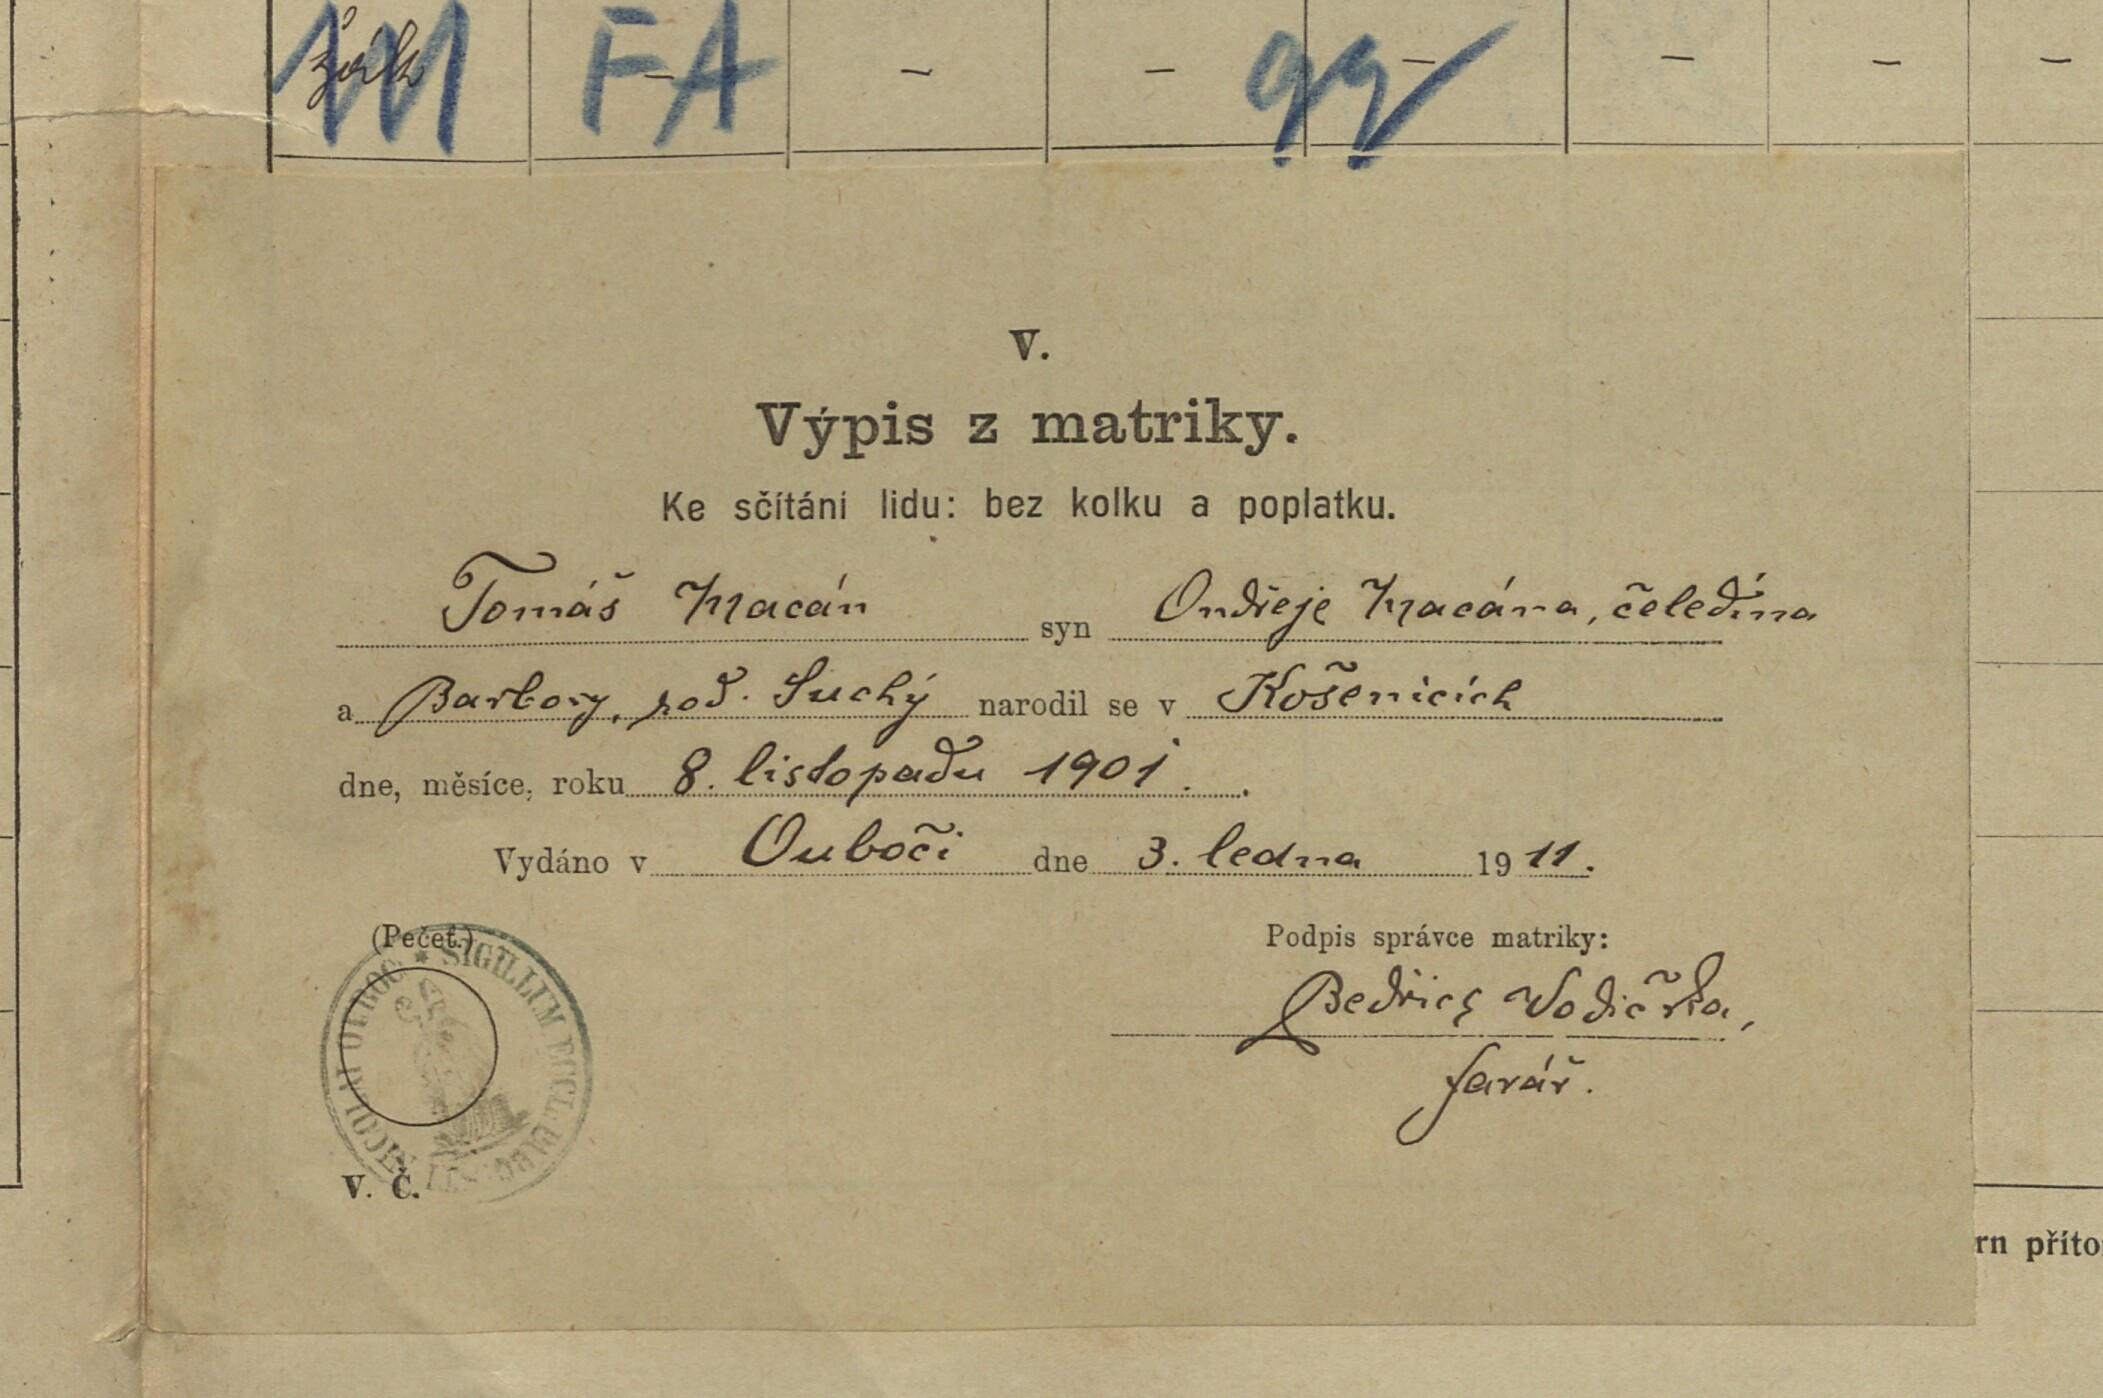 žák - - - - - - -
FA
V.
Výpis z matriky.
Ke sčítání lidu: bez kolku a poplatku.
Tomáš Macán syn Ondřeje Macána, čeledína
a Barbory, roz. Suchý narodil se v Košenicích
dne, měsíce, roku 8. listopadu 1901.
Vydáno v Ouboči dne 3. ledna 1911.
(Pečeť.)
Podpis správce matriky:
Bedřich Vodička,
farář.
* SIGILLUM ECCL.
V. Č.
rn příto